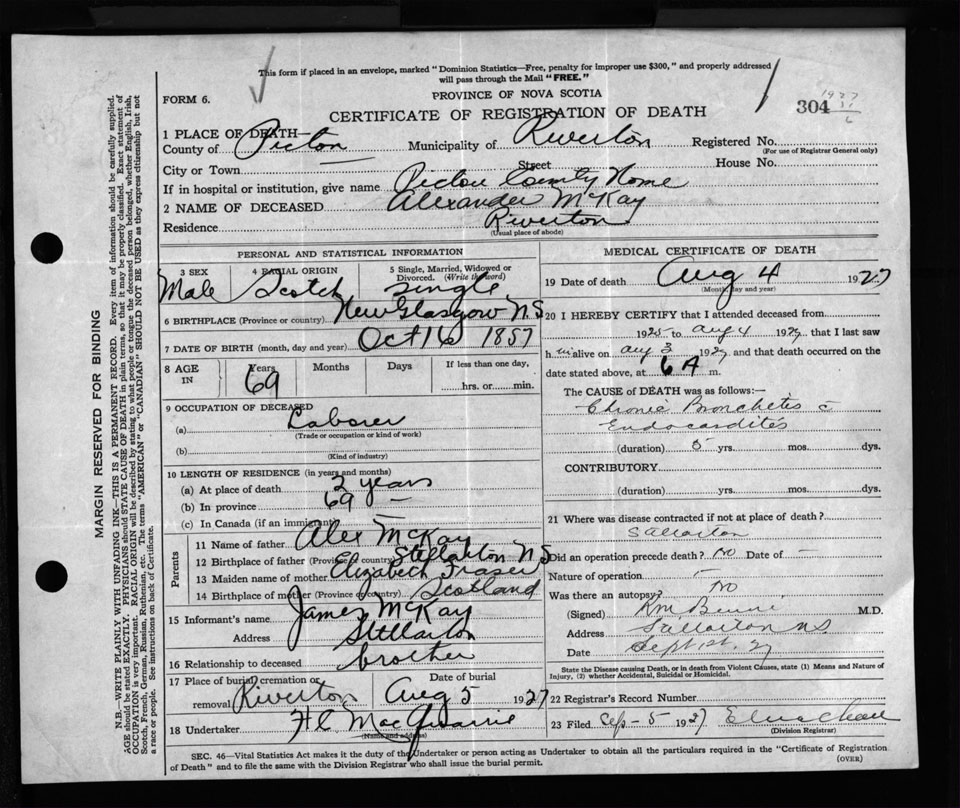 This form if placed in an envelope, marked "Dominion Statistics—Free, penalty for improper use $300," and properly addressed
will pass through the Mail "FREE."
FORM 6.
PROVINCE OF NOVA SCOTIA
304
CERTIFICATE OF REGISTRATION OF DEATH
1 PLACE OF DEATH—
County of Pictou Municipality of Riverton Registered No.
(For use of Registrar General only)
City or Town Street House No.
If in hospital or institution, give name Pictou County Home
2 NAME OF DECEASED Alexander McKay
Residence Riverton
(Usual place of abode)
PERSONAL AND STATISTICAL INFORMATION
3 SEX 4 RACIAL ORIGIN 5 Single, Married, Widowed or Divorced. (Write the word)
Male Scotch Single
6 BIRTHPLACE (Province or country) New Glasgow N.S
7 DATE OF BIRTH (month, day and year) Oct 16 1857
8 AGE IN Years Months Days If less than one day,
69 hrs. or min.
9 OCCUPATION OF DECEASED
(a) Laborer
(Trade or occupation or kind of work)
(b)
(Kind of industry)
10 LENGTH OF RESIDENCE (in years and months)
(a) At place of death 2 years
(b) In province 69 —
(c) In Canada (if an immigrant) —
Parents
11 Name of father Alex McKay
12 Birthplace of father (Province or country) Stellarton N S
13 Maiden name of mother Elizabeth Fraser
14 Birthplace of mother (Province or country) Scotland
15 Informant's name James McKay
Address Stellarton
16 Relationship to deceased brother
17 Place of burial, cremation or removal Date of burial
Riverton Aug 5 1927
18 Undertaker H C MacQuarrie
(Name and address)
MEDICAL CERTIFICATE OF DEATH
19 Date of death Aug 4 1927
(Month, day and year)
20 I HEREBY CERTIFY that I attended deceased from
1925 to Aug 4 1927, that I last saw
h im alive on Aug 3 1927 and that death occurred on the
date stated above, at 6 A m.
The CAUSE of DEATH was as follows:—
Chronic Bronchetes c
Endocardites
(duration) 5 yrs. mos. dys.
CONTRIBUTORY
(duration) yrs. mos. dys.
21 Where was disease contracted if not at place of death?
Stellarton
Did an operation precede death? No Date of —
Nature of operation —
Was there an autopsy? No
(Signed) M.D.
Address Stellarton NS
Date Sept 1st, 27
State the Disease causing Death, or in death from Violent Causes, state (1) Means and Nature of
Injury, (2) whether Accidental, Suicidal or Homicidal.
22 Registrar's Record Number
23 Filed Sep - 5 1927
(Division Registrar)
SEC. 46—Vital Statistics Act makes it the duty of the Undertaker or person acting as Undertaker to obtain all the particulars required in the "Certificate of Registration
of Death" and to file the same with the Division Registrar who shall issue the burial permit.
(OVER)
MARGIN RESERVED FOR BINDING
N.B.—WRITE PLAINLY WITH UNFADING INK—THIS IS A PERMANENT RECORD. Every item of information should be carefully supplied.
AGE should be stated EXACTLY. PHYSICIANS should STATE CAUSE OF DEATH in plain terms, so that it may be properly classified. Exact statement of
OCCUPATION is very important. RACIAL ORIGIN will be described by stating to what people or tongue the deceased person belonged, whether English, Irish,
Scotch, French, German, Russian, Ruthenian, etc. The terms "AMERICAN" or "CANADIAN" SHOULD NOT BE USED as they express citizenship but not
a race or people. See instructions on back of Certificate.